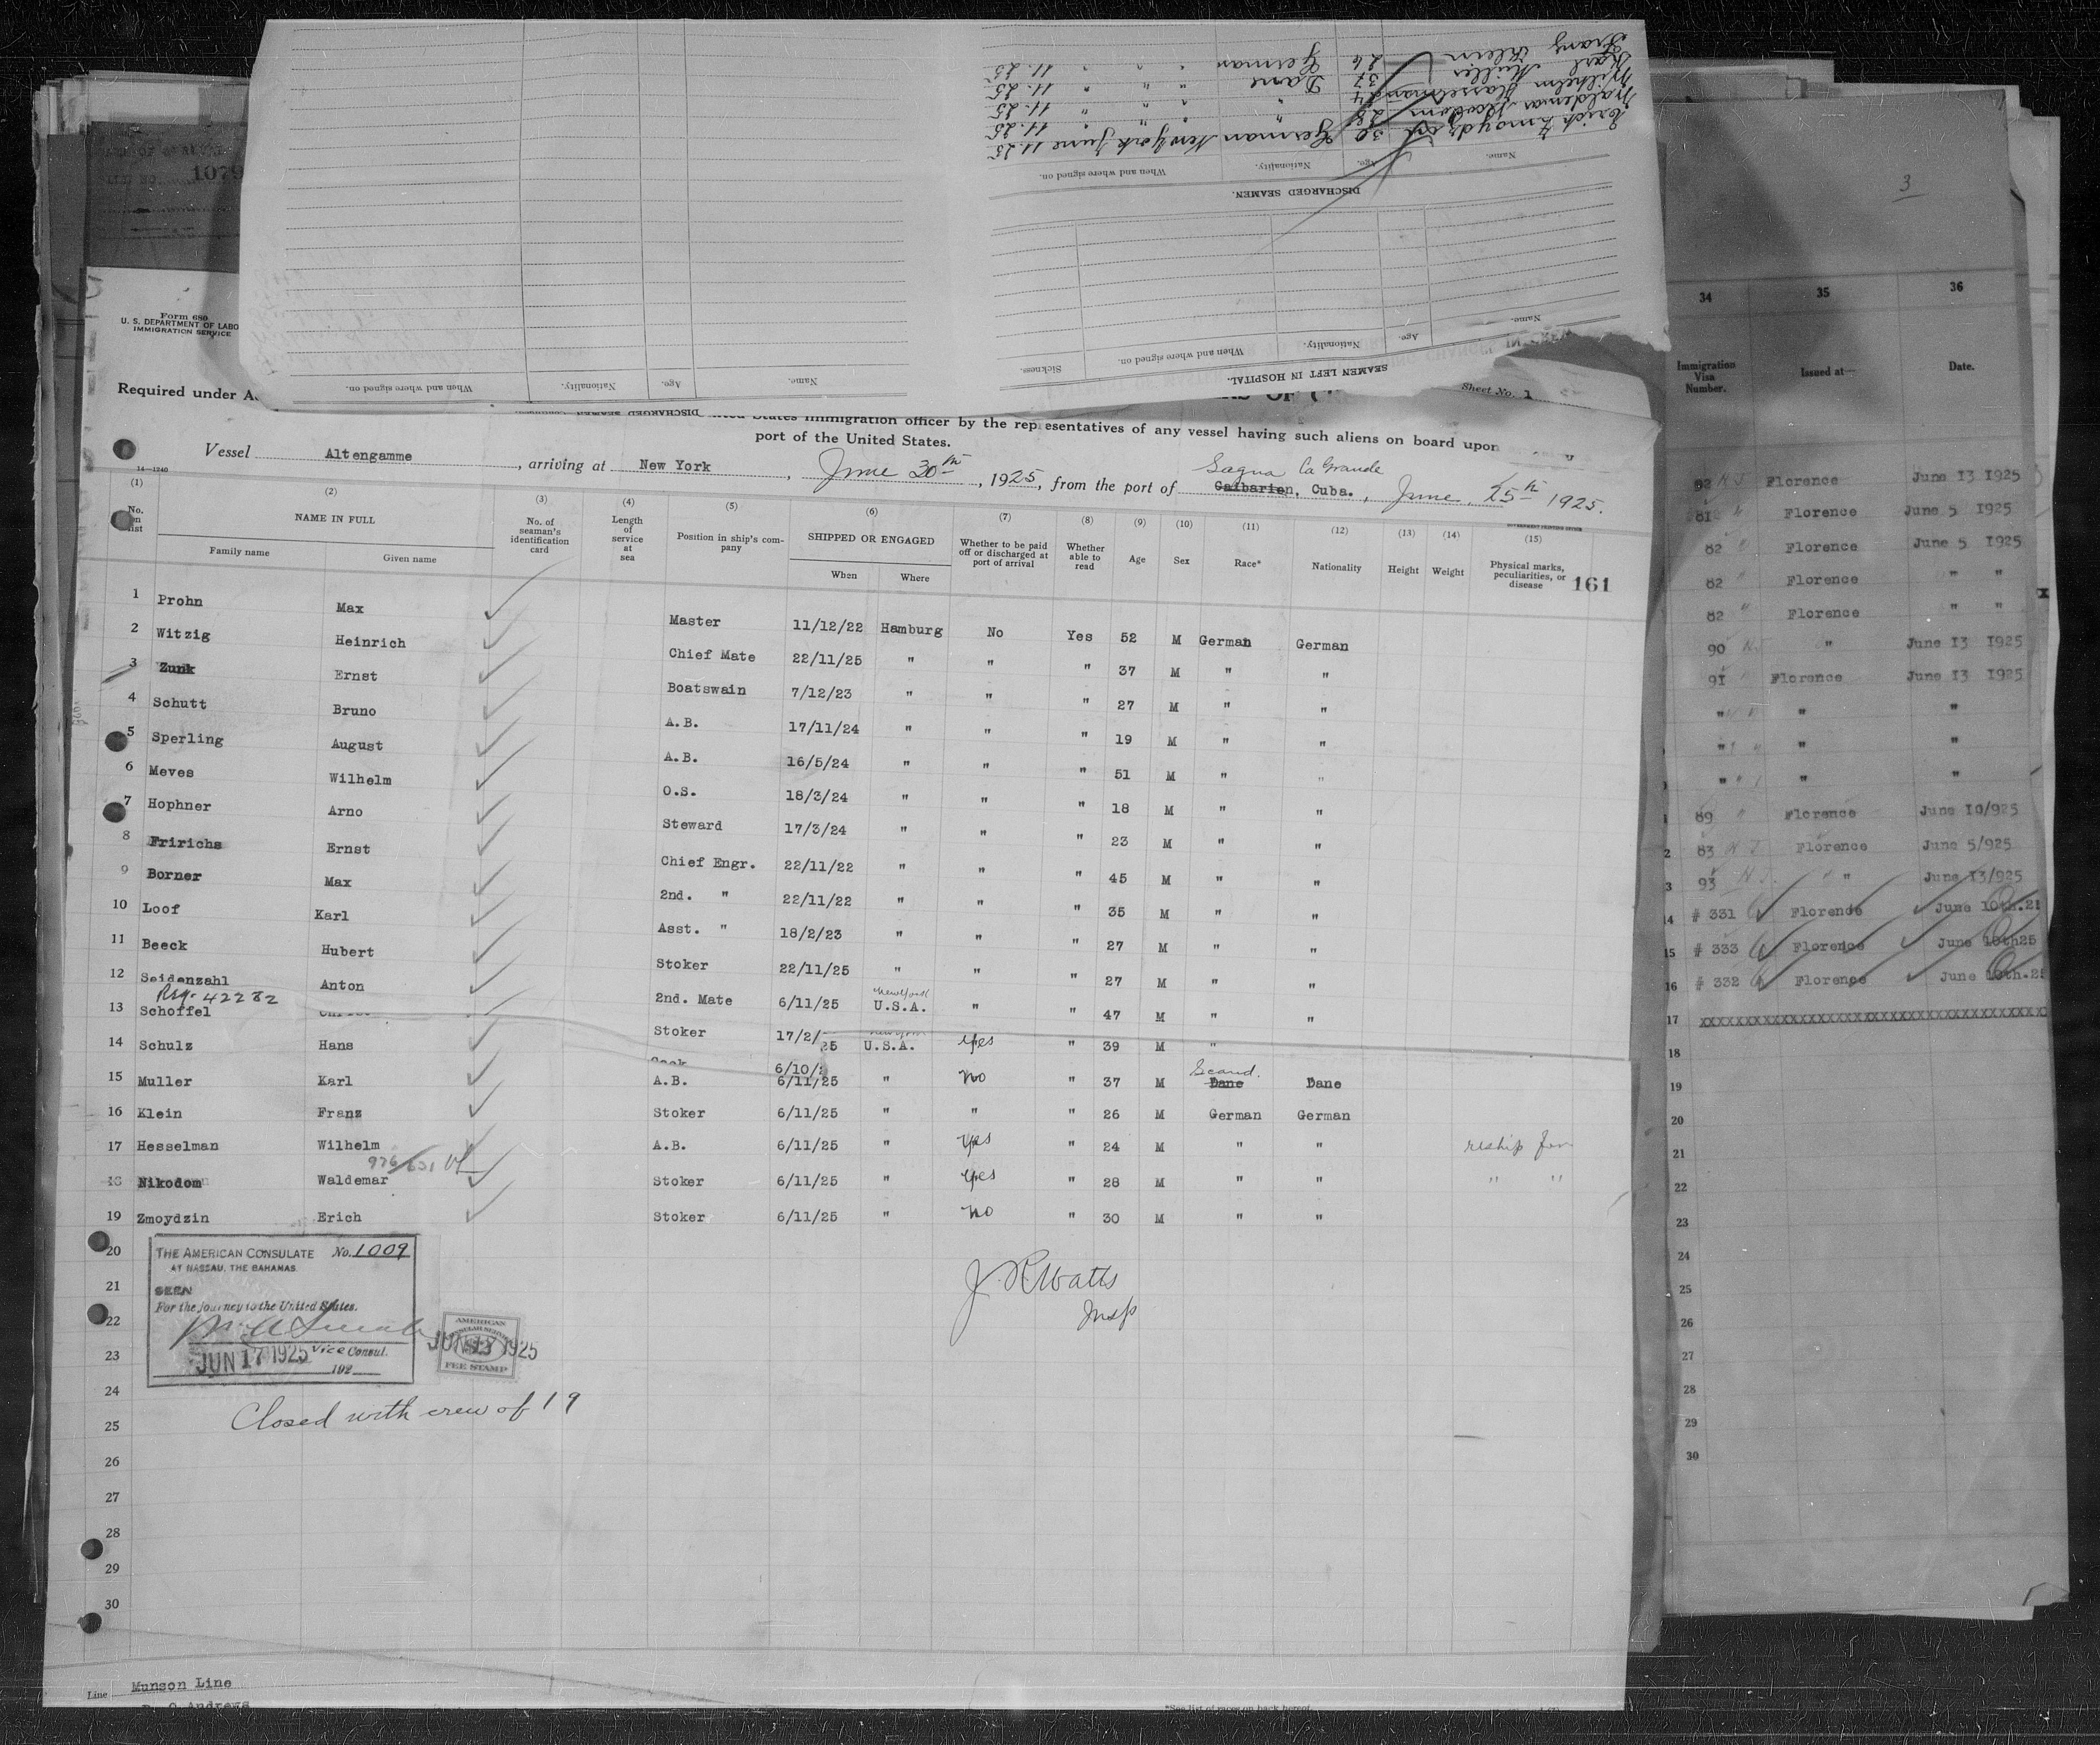 Form 680
U. S. DEPARTMENT OF LABO
IMMIGRATION SERVICE
1079
Required under A
Sheet No. 1
States immigration officer by the representatives of any vessel having such aliens on board upon
port of the United States.
Vessel Altengamme, arriving at New York, June 30th, 1925, from the port of Sagua La Grande Caibarien, Cuba., June 25th 1925.
14-1240
(1) (2) (3) (4) (5) (6) (7) (8) (9) (10) (11) (12) (13) (14) (15)
No. on list
NAME IN FULL
Family name Given name
No. of seaman's identification card
Length of service at sea
Position in ship's company
SHIPPED OR ENGAGED
When Where
Whether to be paid off or discharged at port of arrival
Whether able to read
Age Sex Race* Nationality Height Weight
Physical marks, peculiarities, or disease
161
1 Prohn Max Master 11/12/22 Hamburg No Yes 52 M German German
2 Witzig Heinrich Chief Mate 22/11/25 " " " 37 M " "
3 Zunk Ernst Boatswain 7/12/23 " " " 27 M " "
4 Schutt Bruno A.B. 17/11/24 " " " 19 M " "
5 Sperling August A.B. 16/5/24 " " " 51 M " "
6 Meves Wilhelm O.S. 18/3/24 " " " 18 M " "
7 Hophner Arno Steward 17/3/24 " " " 23 M " "
8 Fririchs Ernst Chief Engr. 22/11/22 " " " 45 M " "
9 Borner Max 2nd. " 22/11/22 " " " 35 M " "
10 Loof Karl Asst. " 18/2/23 " " " 27 M " "
11 Beeck Hubert Stoker 22/11/25 " " " 27 M " "
12 Seidenzahl Anton 2nd. Mate 6/11/25 New York U.S.A. " " 47 M " "
42282
13 Schoffel Stoker 17/2/
14 Schulz Hans 25 U.S.A. yes " 39 M "
6/10/
15 Muller Karl A.B. 6/11/25 " no " 37 M Scand. Dane Dane
16 Klein Franz Stoker 6/11/25 " " " 26 M German German
17 Hesselman Wilhelm A.B. 6/11/25 " yes " 24 M " " reship for
976/631
18 Nikodom Waldemar Stoker 6/11/25 " yes " 28 M " " " "
19 Zmoydzin Erich Stoker 6/11/25 " no " 30 M " "
20
21
22
23
24
25
26
27
28
29
30
THE AMERICAN CONSULATE No. 1009
AT NASSAU, THE BAHAMAS.
SEEN
For the journey to the United States.
Vice Consul.
JUN 17 1925
192
AMERICAN
CONSULAR SERVICE
JUN 17 1925
FEE STAMP
J. R Watts
Insp
Closed with crew of 19
Line Munson Line
*See list of races on back hereof.
DISCHARGED SEAMEN.
Name. Age. Nationality. When and where signed on.
SEAMEN LEFT IN HOSPITAL.
Name. Age. Nationality. When and where signed on. Sickness.
DISCHARGED SEAMEN.
Name. Age. Nationality. When and where signed on.
Erich Zmoydzin 30 German New York June 11.25
Waldemar Nicodom 28 " " " " 11.25
Wilhelm Hasselmann 24 " " " " 11.25
Karl Müller 37 Dane " " " 11.25
Franz Klein 26 German " " " 11.25
3
34 35 36
Immigration Visa Number. Issued at— Date.
82 Florence June 13 1925
81 Florence June 5 1925
82 " Florence June 5 1925
82 " Florence " "
82 " Florence " "
90 " June 13 1925
91 Florence June 13 1925
" " "
" " "
" " "
89 " Florence June 10/925
83 Florence June 5/925
93 " " June 13/925
14 # 331 Florence June 10th.25
15 # 333 Florence June 10th25
16 # 332 Florence June 10th.25
17 xxxxxxxxxxxxxxxxxxxxxxxxxxxxxxxxxxxxxx
18
19
20
21
22
23
24
25
26
27
28
29
30